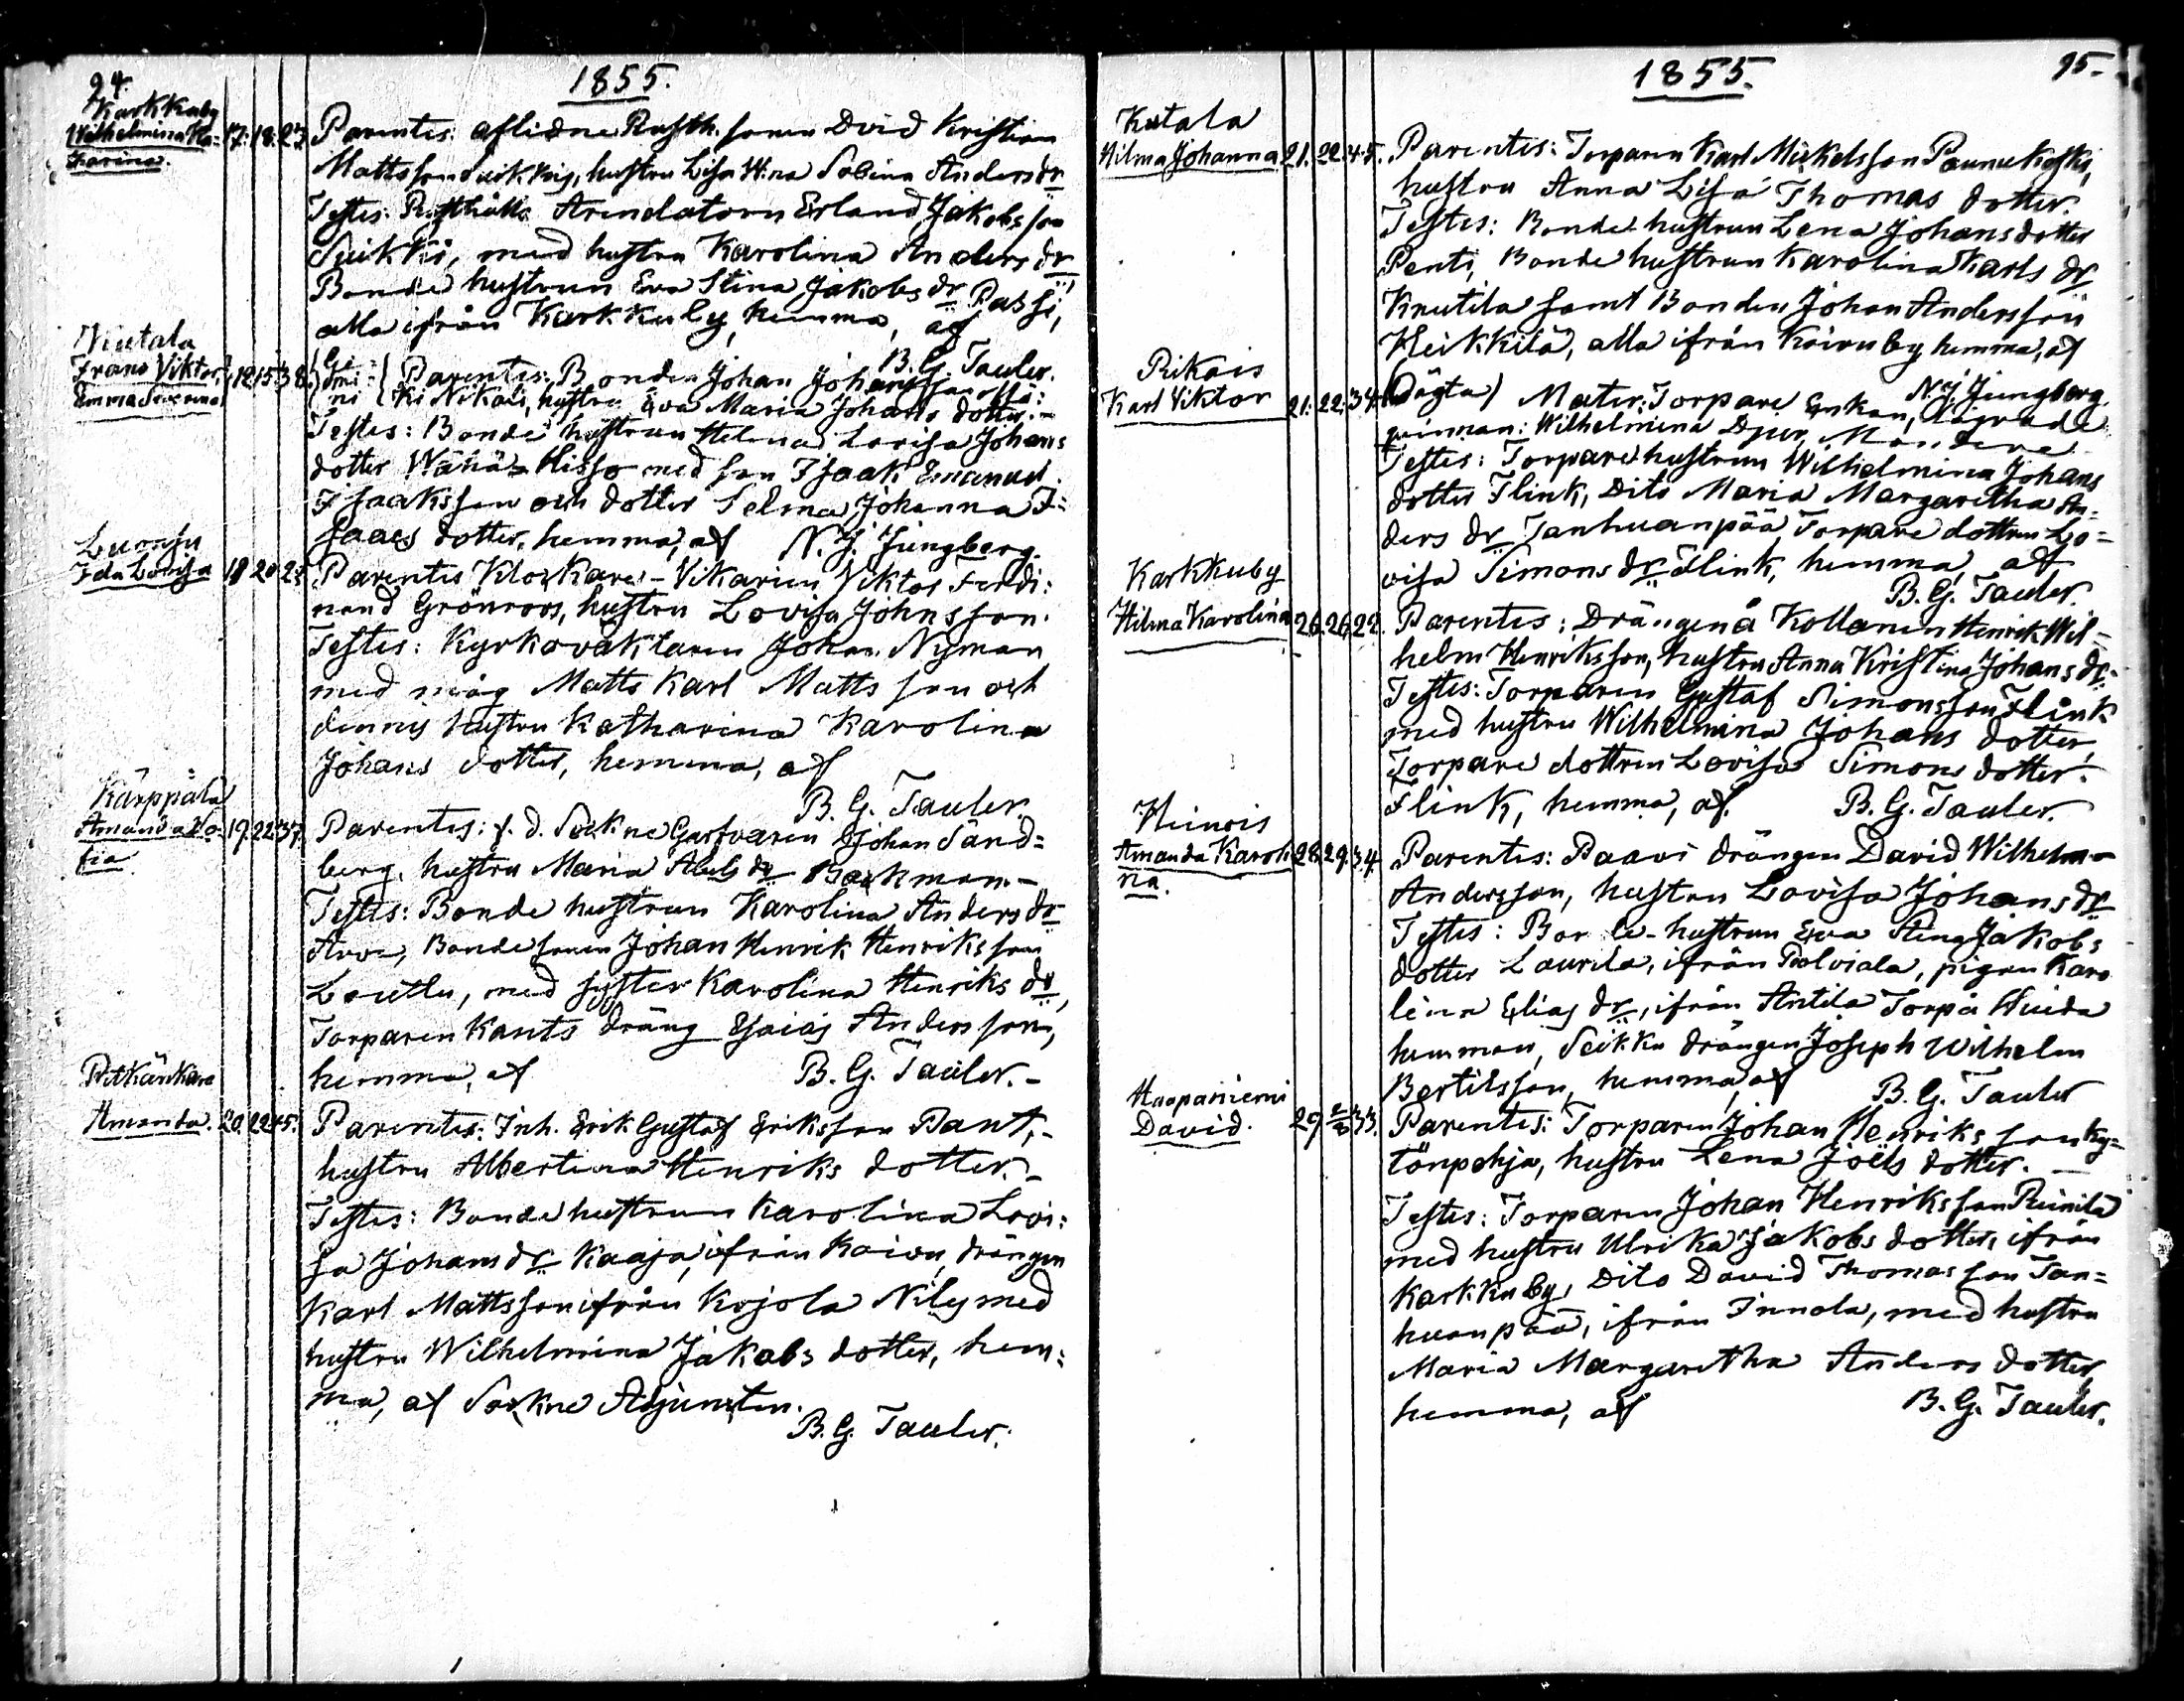 94.
1855.
Karkkuby
Wilhelmina Ka=
tarina.
17. 18. 23.
Parentes: aflidne Rusth. sonen Dvid Kristian
Mattsson Suikkis, hustru Lisa W:na Sabina Anders dr
Testes: Rusthålls Arendatorn Erland Jakobsson
Suikki, med hustru Karolina Anders dr
Bonde hustrun Eva Stina Jakobs dr Passi,
alla ifrån Karkkuby, hemma, af
B. G. Tauler.
Frans Viktor,
12. 15. 38.
Parentes: Bonden Johan Johansson
Nikais, hustru Eva Maria Johans dotter.
Testes: Bonde hustrun Helena Lovisa Johans
dotter Wähä=Hisso med son Isaak Emanuel
Isaaksson och dotter Selma Johanna I=
saacs dotter, hemma, af N. J. Jungberg.
Ida Lovisa
18. 20. 25.
Parentes Klockare-Vikarien Viktor Ferdi:
nand Grönroos, hustru Lovisa Johnsson.
Testes: Kyrkovaktaren Johan Nyman
med måg Matts Karl Mattsson och
dennis hustru Katharina Karolina
Johans dotter, hemma, af
B. G. Tauler.
Kärppälä
Amanda So=
fia.
19. 22. 37.
Parentes: f. d. Sockne Garfvaren Johan Sand=
berg, hustru Maria Abels dr Backman.-
Testes: Bonde hustrun Karolina Anders dr
Arve, Bonde sonen Johan Henrik Henriksson
Louttu, med syster Karolina Henriks dr,
Torparen Kants dräng Esaias Andersson,
hemma, af B. G. Tauler.-
Amanda. 20. 22. 45.
Parentes: Inh. Erik Gustaf Eriksson Pant,-
hustru Albertina Henriks dotter.-
Testes: Bonde hustrun Karolina Lovi:
sa Johans dr Kaaja, ifrån Koivu, drängen
Karl Mattsson ifrån Kojola Nily med
hustru Wilhelmina Jakobs dotter, hem:
ma, af Sockne Adjunten.
B. G. Tauler.
1855.
95.
Kutala
Hilma Johanna
21. 22. 45.
Parentes: Torparen Karl Mickelsson Paunukoski,
hustru Anna Lisa Thomas dotter.
Testes: Bonde hustrun Lena Johansdotter
Penti, Bonde hustrun Karolina Karls dr
Knutila samt Bonden Johan Andersson
Heikkilä, alla ifrån Koivuby, hemma, af
N. J. Jungberg.
Rikais
Karl Viktor
21. 22. 34.
(Oägta) Mater: Torpare Enkan, lägrade
qvinnan: Wilhelmina Djur,
Testes: Torpare hustrun Wilhelmina Johans
dotter Flink, Dito Maria Margaretha An=
ders dr Tanhuanpää, Torpare dottren Lo=
visa Simons dr Flink, hemma, af
B. G. Tauler.
Karkkuby
Hilma Karolina
26. 26. 22.
Parentes: Drängen å Kollanen Henrik Wil=
helm Henriksson, hustru Anna Kristina Johans dr.
Testes: Torparen Gustaf Simonsson Flink
med hustru Wilhelmina Johans dotter,
Torpare dottren Lovisa Simons dotter.
Flink, hemma, af. B. G. Tauler.
Heinois
Amanda Karoli
na.
28. 29. 34.
Parentes: Paavi drängen David Wilhelm
Andersson, hustru Lovisa Johans dr
Testes: Bonde-hustrun Eva Stina Jakobs
dotter Laurila, ifrån Palviala, pigan Karo
lina Elias dr, ifrån Antila Torpå Huida
hemman, Seikku drängen Joseph Wilhelm
Bertilsson, hemma, af B. G. Tauler
Haapaniemi
David.
29 2/8 33.
Parentes: Torparen Johan Henriksson Ky=
tönpohja, hustru Lena Joels dotter. -
Testes: Torparen Johan Henriksson Reinilä
med hustru Ulrika Jakobs dotter, ifrån
Karkkuby, Dito David Thomasson Tan=
huanpää, ifrån Innola, med hustru
Maria Margaretha Anders dotter,
hemma, af B. G. Tauler.